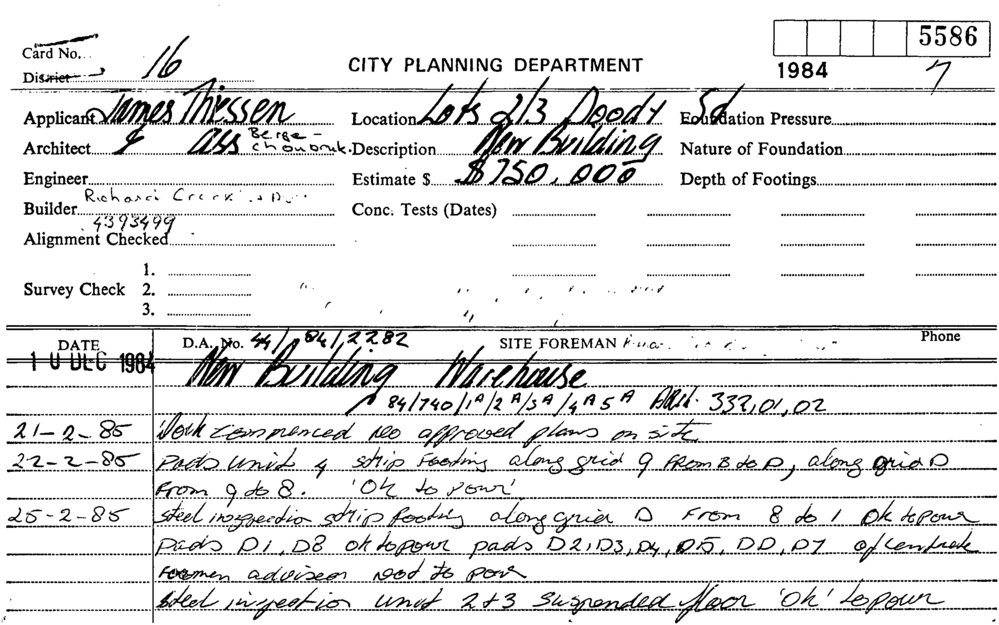 5586
Card No.
District 16
CITY PLANNING DEPARTMENT
1984 7
Applicant James Thiessen
Location Lots 2/3 Doody Sd
Foundation Pressure
Architect & Ass Berge-
Description New Building
Nature of Foundation
Engineer
Estimate $ $750,000
Depth of Footings
Builder Richard
Conc. Tests (Dates)
4393499
Alignment Checked
1.
Survey Check 2.
3.
DATE D.A. No. 44/84/2282 SITE FOREMAN Phone
10 DEC 1984 New Building Warehouse
84/740/1A/2A/3A/4A5A 332,01,02
21-2-85 Work commenced no approved plans on site
22-2-85 Pads unit 4 strip footing along grid 9 FROM B to D, along grid D
From 9 to 8. 'OK to pour'
25-2-85 Steel inspection strip footing along grid D From 8 to 1 OK to pour
pads D1, D8 ok to pour pads D2, D3, D4, D5, DD, D7 of centre
Foremen advised not to pour
Steel inspection unit 2+3 suspended floor 'OK' to pour